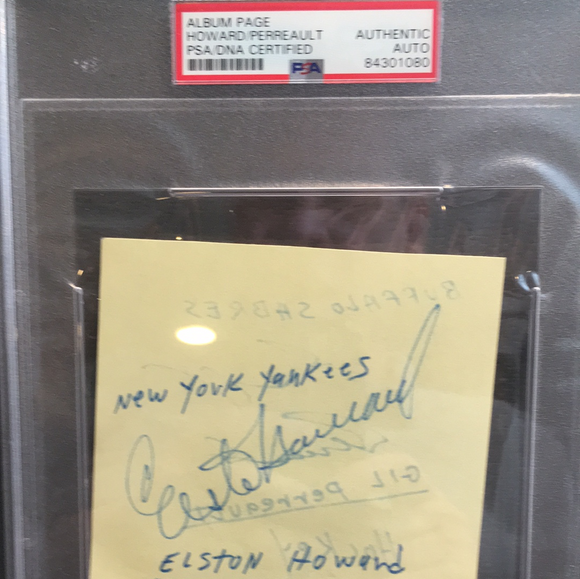 ALBUM PAGE
HOWARD/PERREAULT AUTHENTIC
PSA/DNA CERTIFIED AUTO
PSA 84301080
BUFFALO SABRES
New York Yankees
Elston Howard
GIL Perreault
Hockey
ELSTON Howard